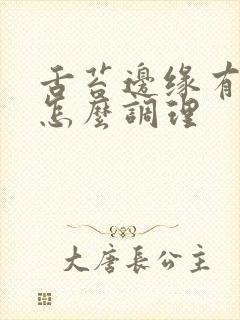 舌苔邊缘有
怎麼調理
大唐長公主